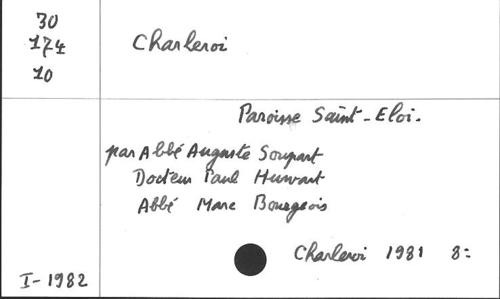 30
174
10
Charleroi
Paroisse Saint-Eloi.
par Abbé Auguste Soupart
Docteur Paul Huwart
Abbé Marc Bourgeois
Charleroi 1981 8=
I-1982